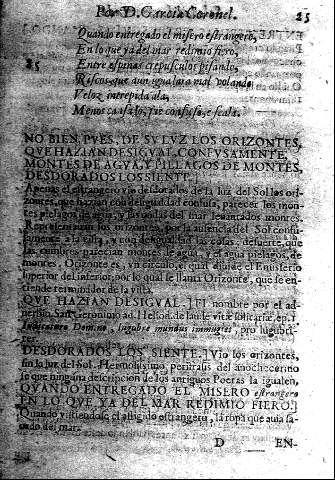 Por D. Garcia Coronel. 25
Quando entregado el misero estrangero,
En lo que ya del mar redimio fiero,
25 Entre espinas crepusculos pisando,
Riscos que aun igualara mal volando
Veloz intrepida ala,
Menos cansado, que confuso, escala.
NO BIEN PVES, DE SV LVZ LOS ORIZONTES,
QVE HAZIAN DESIGVAL, CONFVSAMENTE,
MONTES DE AGVA, Y PIELAGOS DE MONTES,
DESDORADOS LOS SIENTE.]
Apenas el estrangero vio desdorados de la luz del Sol los ori-
zontes, que hazian con desigualdad confusa, parecer los montes
pielagos de agua, y las ondas del mar levantados montes.
los orizontes, por la ausencia del Sol confusa-
mente a la vista, y con desigualdad las cosas, de suerte, que
las cumbres parecian montes de agua, y el agua pielagos, de
montes. Orizonte es, un circulo, el qual divide el Emisferio
superior del inferior, por lo qual se llama Orizonte, que se en-
tiende terminador de la vista.
QVE HAZIAN DESIGVAL.] El nombre por el ad-
verbio. San Geronimo ad Heliod. de laude vitæ solitariæ.
Domino, lugubre mundus immugiet, pro lugubri-
ter.
DESDORADOS LOS SIENTE.] Vio los orizontes,
sin la luz del Sol. Hermosissimo, perifrasis del anochecer no
se que ninguna descripcion de los antiguos Poetas la igualen,
QVANDO ENTREGADO EL MISERO estrangero
EN LO QVE YA DEL MAR REDIMIO FIERO.]
Quando vistiendose el afligido estrangero, la ropa que auia sa-
cado del mar.
D EN-